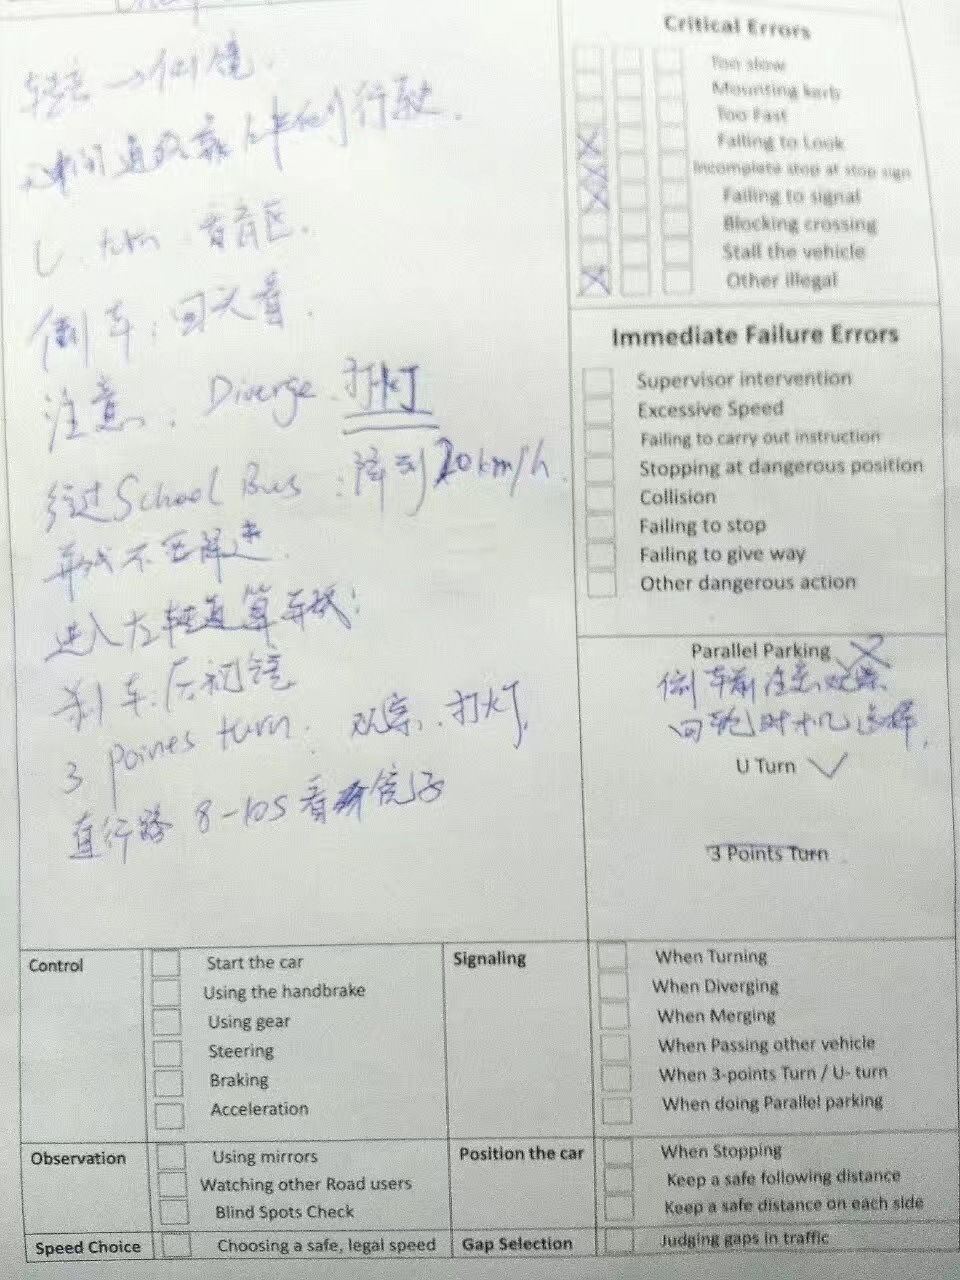 转弯→侧镜.
无中间道路靠左侧行驶.
U turn 看盲区.
倒车：回头看.
注意：Diverge 打灯
经过School Bus：降到20km/h.
进入左转道算车
刹车.后视镜
3 Points turn：观察、打灯.
直行路 8-10S 看镜子
Critical Errors
Too slow
Mounting kerb
Too Fast
Failing to Look
Incomplete stop at stop sign
Failing to signal
Blocking crossing
Stall the vehicle
Other illegal
Immediate Failure Errors
Supervisor intervention
Excessive Speed
Failing to carry out instruction
Stopping at dangerous position
Collision
Failing to stop
Failing to give way
Other dangerous action
Parallel Parking
倒车前注意观察
回轮时机选择.
U Turn
3 Points Turn
Control
Start the car
Using the handbrake
Using gear
Steering
Braking
Acceleration
Signaling
When Turning
When Diverging
When Merging
When Passing other vehicle
When 3-points Turn / U- turn
When doing Parallel parking
Observation
Using mirrors
Watching other Road users
Blind Spots Check
Position the car
When Stopping
Keep a safe following distance
Keep a safe distance on each side
Speed Choice
Choosing a safe, legal speed
Gap Selection
Judging gaps in traffic